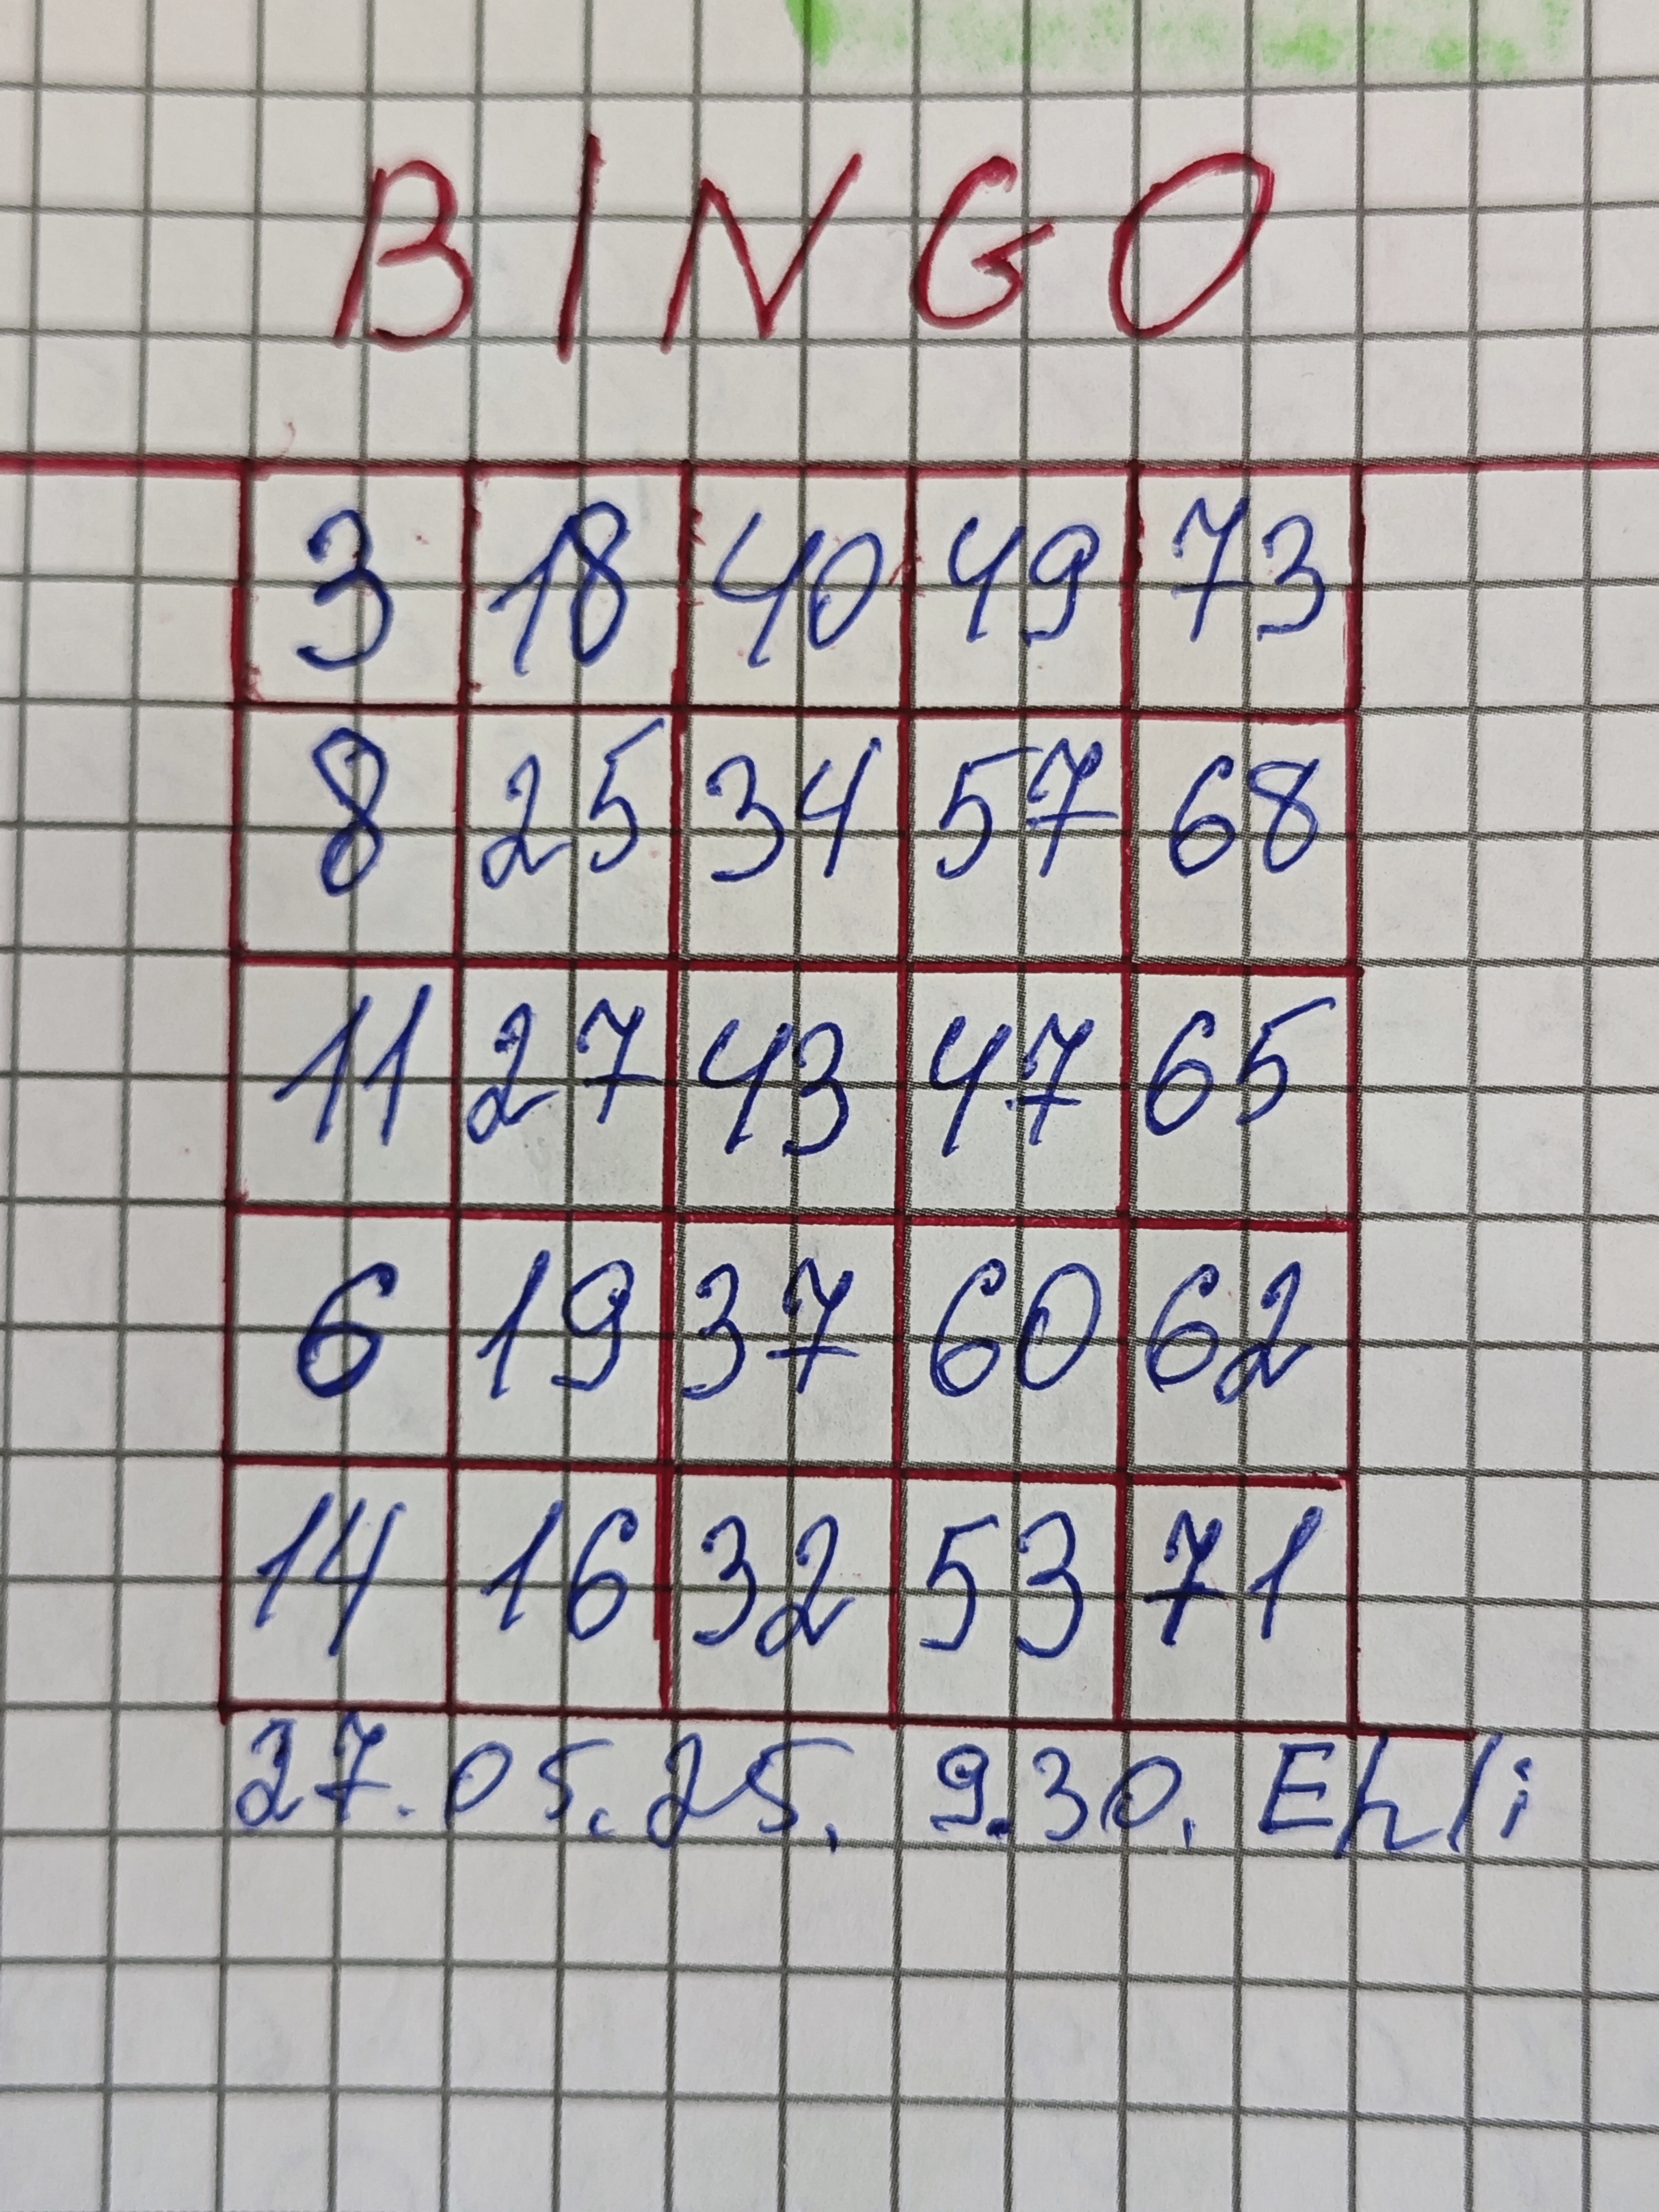 BINGO
3 18 40 49 73
8 25 34 57 68
11 27 43 47 65
6 19 37 60 62
14 16 32 53 71
27.05.25. 9.30. Ehli